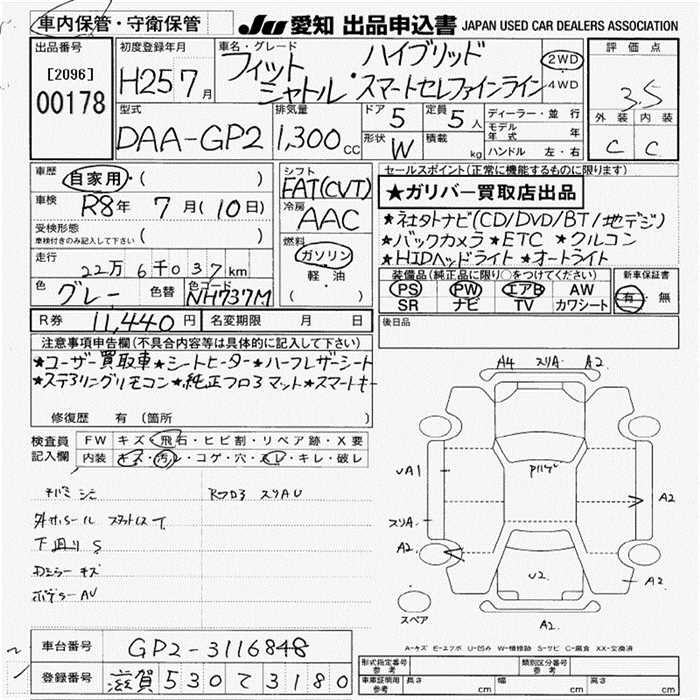 車内保管・守衛保管
JU 愛知 出品申込書 JAPAN USED CAR DEALERS ASSOCIATION
出品番号
[2096]
00178
初度登録年月
H25 7月
車名・グレード
フィット シャトル・ハイブリッド スマートセレクファインライン
2WD・4WD
評価点
3.5
外装 内装
C C
型式
DAA-GP2
排気量
1,300cc
ドア 5
定員 5人
形状 W
積載 kg
ディーラー・並行
モデル年式 年
ハンドル 左・右
車歴
自家用・( )
車検
R8年 7月(10日)
受検形態
車検付きのみ記入して下さい ( )
走行
22万6千037km
色
グレー
色替
色コード
NH737M
シフト
FAT(CVT)
冷房
AAC
燃料
ガソリン
軽・油
( )
セールスポイント(正常に機能するものに限ります)
★ガリバー買取店出品
★社外ナビ(CD/DVD/BT/地デジ)
★バックカメラ★ETC ★クルコン
★HIDヘッドライト★オートライト
装備品(純正品に限り○をつけてください)
PS PW エアB AW
SR ナビ TV カワシート
新車保証書
有・無
R券 11,440円
名変期限 月 日
後日品
注意事項申告欄(不具合内容等は具体的に記入して下さい)
★ユーザー買取車★シートヒーター★ハーフレザーシート
★ステアリングリモコン★純正フロアマット★スマートキー
修復歴 有(箇所
検査員記入欄
FW キズ・飛石・ヒビ割・リペア跡・X要
内装 キズ・汚レ・コゲ・穴・スレ・キレ・破レ
下廻りS
ドアミラーキズ
ボデーAU
A4 スリA A2
UA1
スリA
A2
A2
A2
U2
A2
スペア
A-キズ E-エクボ U-凹み W-補修跡 S-サビ C-腐食 XX-交換済
車台番号
GP2-3116848
登録番号
滋賀 530 て 3180
形式指定番号 参考
類別区分番号 参考
車庫証明用 参考 長さ cm 幅 cm 高さ cm